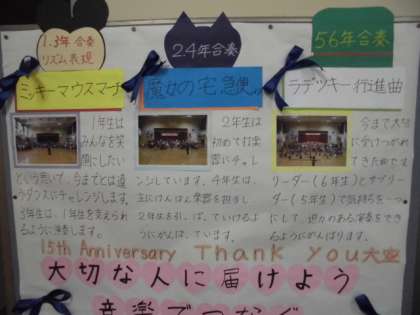 1.3年合奏
リズム表現
2.4年合奏
5 6年合奏
ミッキーマウスマーチ
魔女の宅急便
ラデツキー行進曲
1年生は
みんなを笑
顔にしたい
という思いで、今までとは違う
ダンスにチャレンジします。
3年生は、1年生を支えられ
るように演奏します。
2年生は
初めて打楽
器にチャレ
ンジしています。4年生は、
主にけんばん
2年生を引
うにがんばっています。
今まで大切
に受けつがれ
てきた曲です。
リーダー(6年生)とサブリー
ダー(5年生)で気持ちを一つ
にして、迫力のある演奏をでき
るようにがんばります。
15th Anniversary Thank You大空
大切な人に届けよう
音楽でつなぐ